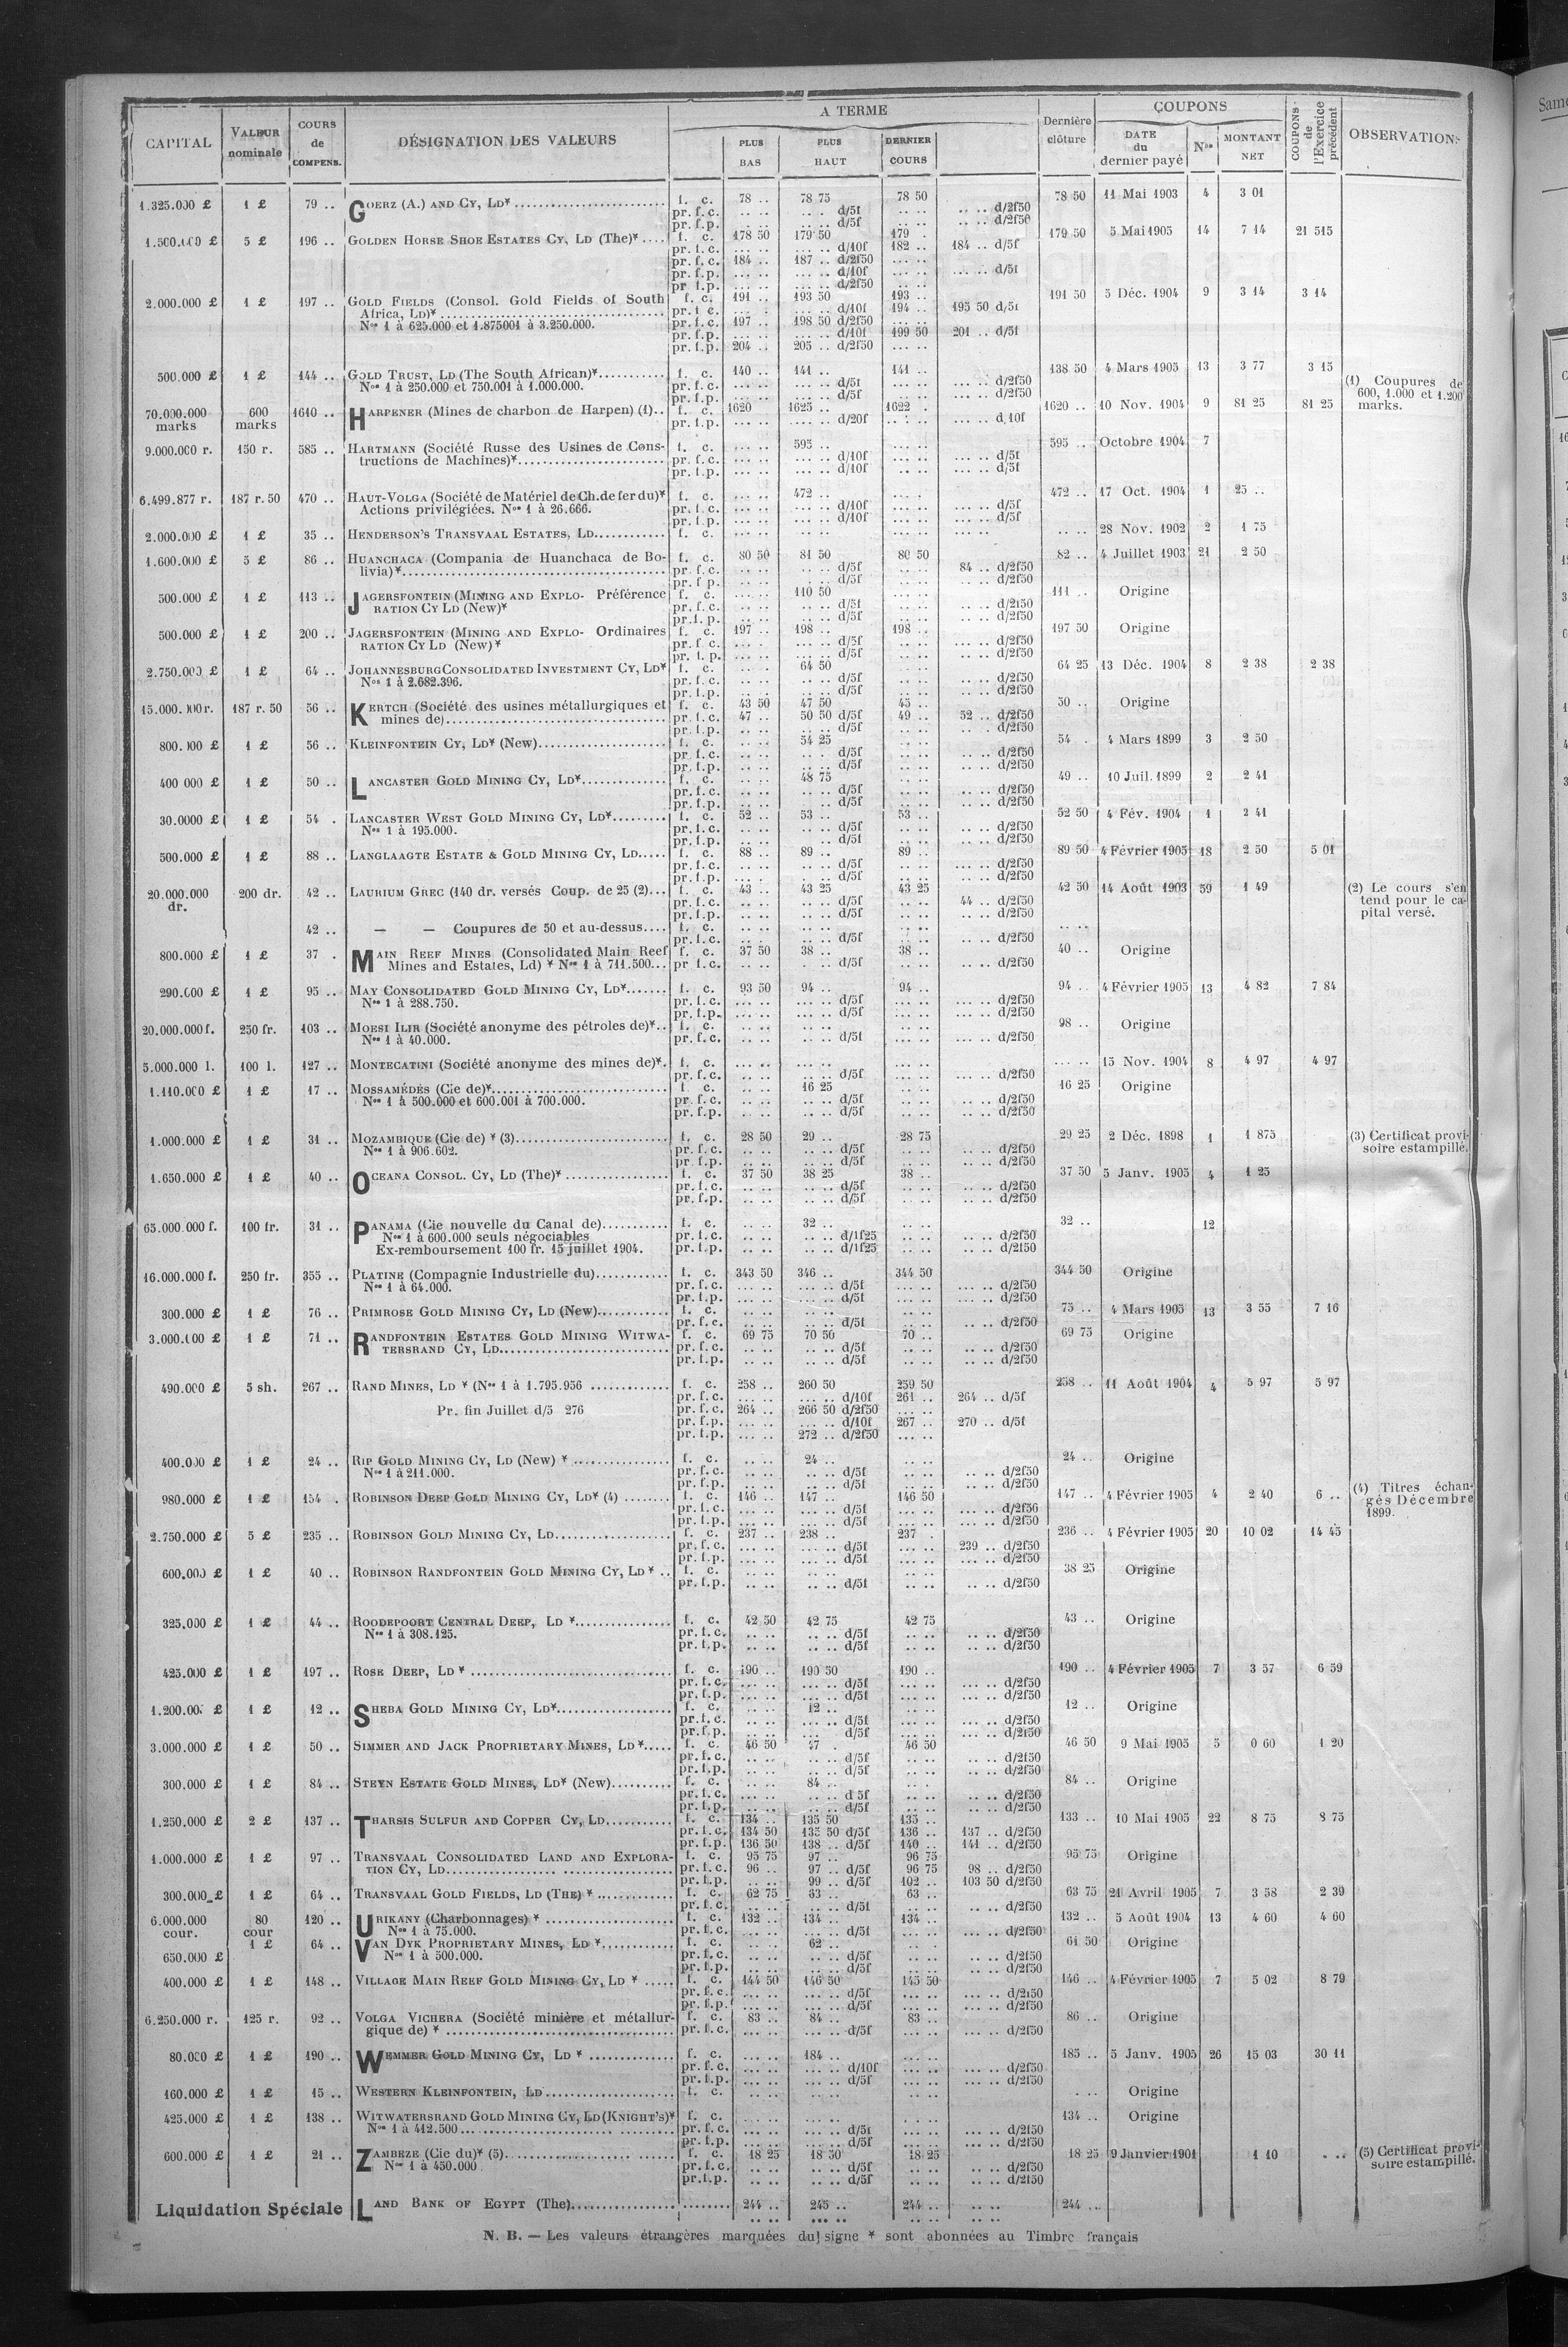 A TERME
COUPONS
CAPITAL VALEUR nominale COURS de COMPENS. DÉSIGNATION DES VALEURS PLUS BAS PLUS HAUT DERNIER COURS Dernière clôture DATE du dernier payé Nos MONTANT NET COUPONS de l'Exercice précédent OBSERVATIONS
1.325.000 £ 1 £ 79 .. GOERZ (A.) AND CY, LD* f. c. 78 .. 78 75 78 50 78 50 11 Mai 1903 4 3 01
pr. f.c. .. .. .. .. d/5f .. .. .. .. d/2f50
pr. f.p. .. .. .. .. d/5f .. .. .. .. d/2f50
1.500.000 £ 5 £ 196 .. GOLDEN HORSE SHOE ESTATES CY, LD (The)* .... f. c. 178 50 179 50 179 . 179 50 5 Mai 1905 14 7 14 21 515
pr. f.c. ... .. ... .. d/10f 182 .. 184 .. d/5f
pr. f.c. 184 .. 187 .. d/2f50 ... ..
pr. f.p. ... .. ... .. d/10f ... .. ... .. d/5f
pr. f.p. ... .. ... .. d/2f50
2.000.000 £ 1 £ 197 .. GOLD FIELDS (Consol. Gold Fields of South f. c. 191 .. 193 50 193 .. 191 50 5 Déc. 1904 9 3 14 3 14
Africa, LD)* pr. f.c. ... .. ... .. d/10f 194 .. 195 50 d/5f
Nos 1 à 625.000 et 1.875001 à 3.250.000. pr. f.c. 197 .. 198 50 d/2f50 ... ..
pr. f.p. ... .. ... .. d/10f 199 50 201 .. d/5f
pr. f.p. 204 .. 205 .. d/2f50 ... ..
500.000 £ 1 £ 144 .. GOLD TRUST, LD (The South African)* f. c. 140 .. 141 .. 141 .. 138 50 4 Mars 1905 13 3 77 3 15
Nos 1 à 250.000 et 750.001 à 1.000.000. pr. f.c. ... .. ... .. d/5f ... .. ... .. d/2f50
pr. f.p. ... .. ... .. d/5f ... .. ... .. d/2f50
(1) Coupures de 600, 1.000 et 1.200 marks.
70.000.000 marks 600 marks 1610 .. HARPENER (Mines de charbon de Harpen) (1).. f. c. 1620 1625 .. 1622 . 1620 .. 10 Nov. 1904 9 81 25 81 25
pr. f.p. ... .. ... .. d/20f ... .. ... .. d/10f
9.000.000 r. 150 r. 585 .. HARTMANN (Société Russe des Usines de Cons- f. c. ... .. 595 .. ... .. 595 .. Octobre 1904 7
tructions de Machines)* pr. f.c. ... .. ... .. d/10f ... .. ... .. d/5f
pr. f.p. ... .. ... .. d/10f ... .. ... .. d/5f
6.499.877 r. 187 r. 50 470 .. HAUT-VOLGA (Société de Matériel de Ch. de fer du)* f. c. ... .. 472 .. ... .. 472 .. 17 Oct. 1904 1 25 ..
Actions privilégiées. Nos 1 à 26.666. pr. f.c. ... .. ... .. d/10f ... .. ... .. d/5f
pr. f.p. ... .. ... .. d/10f ... .. ... .. d/5f
2.000.000 £ 1 £ 35 .. HENDERSON'S TRANSVAAL ESTATES, LD f. c. .. .. .. .. .. .. .. .. 28 Nov. 1902 2 1 75
1.600.000 £ 5 £ 86 .. HUANCHACA (Compania de Huanchaca de Bo- f. c. 80 50 81 50 80 50 82 .. 4 Juillet 1903 21 2 50
livia)* pr. f.c. .. .. .. .. d/5f .. .. 84 .. d/2f50
pr. f.p. .. .. .. .. d/5f .. .. .. .. d/2f50
500.000 £ 1 £ 113 .. JAGERSFONTEIN (MINING AND EXPLO- Préférence f. c. .. .. 110 50 .. .. 111 .. Origine
RATION CY LD (New)* pr. f.c. .. .. .. .. d/5f .. .. .. .. d/2f50
pr. f.p. .. .. .. .. d/5f .. .. .. .. d/2f50
500.000 £ 1 £ 200 .. JAGERSFONTEIN (MINING AND EXPLO- Ordinaires f. c. 197 .. 198 .. 198 .. 197 50 Origine
RATION CY LD (New)* pr. f.c. ... .. ... .. d/5f ... .. ... .. d/2f50
pr. f.p. ... .. ... .. d/5f ... .. ... .. d/2f50
2.750.000 £ 1 £ 64 .. JOHANNESBURG CONSOLIDATED INVESTMENT CY, LD* f. c. .. .. 64 50 .. .. 64 25 13 Déc. 1904 8 2 38 2 38
Nos 1 à 2.682.396. pr. f.c. .. .. .. .. d/5f .. .. .. .. d/2f50
pr. f.p. .. .. .. .. d/5f .. .. .. .. d/2f50
15.000.000 r. 187 r. 50 56 .. KERTCH (Société des usines métallurgiques et f. c. 43 50 47 50 45 .. 50 .. Origine
mines de) pr. f.c. 47 .. 50 50 d/5f 49 .. 52 .. d/2f50
pr. f.p. .. .. .. .. d/5f .. .. .. .. d/2f50
800.000 £ 1 £ 56 .. KLEINFONTEIN CY, LD* (New) f. c. .. .. 54 25 .. .. 54 . 4 Mars 1899 3 2 50
pr. f.c. .. .. .. .. d/5f .. .. .. .. d/2f50
pr. f.p. .. .. .. .. d/5f .. .. .. .. d/2f50
400 000 £ 1 £ 50 .. LANCASTER GOLD MINING CY, LD* f. c. .. .. 48 75 .. .. 49 .. 10 Juil. 1899 2 2 41
pr. f.c. .. .. .. .. d/5f .. .. .. .. d/2f50
pr. f.p. .. .. .. .. d/5f .. .. .. .. d/2f50
30.0000 £ 1 £ 54 . LANCASTER WEST GOLD MINING CY, LD* f. c. 52 .. 53 .. 53 .. 52 50 4 Fév. 1904 1 2 41
Nos 1 à 195.000. pr. f.c. .. .. .. .. d/5f .. .. .. .. d/2f50
pr. f.p. .. .. .. .. d/5f .. .. .. .. d/2f50
500.000 £ 1 £ 88 .. LANGLAAGTE ESTATE & GOLD MINING CY, LD f. c. 88 .. 89 .. 89 .. 89 50 4 Février 1905 18 2 50 5 01
pr. f.c. .. .. .. .. d/5f .. .. .. .. d/2f50
pr. f.p. .. .. .. .. d/5f .. .. .. .. d/2f50
20.000.000 dr. 200 dr. 42 .. LAURIUM GREC (140 dr. versés Coup. de 25 (2)... f. c. 43 .. 43 25 43 25 42 50 14 Août 1903 59 1 49
pr. f.c. .. .. .. .. d/5f .. .. 44 .. d/2f50
pr. f.p. .. .. .. .. d/5f .. .. .. .. d/2f50
(2) Le cours s'entend pour le capital versé.
42 .. — — Coupures de 50 et au-dessus.... f. c. .. .. .. .. .. .. .. ..
pr. f.c. .. .. .. .. d/5f .. .. .. .. d/2f50
800.000 £ 1 £ 37 . MAIN REEF MINES (Consolidated Main Reef f. c. 37 50 38 .. 38 .. 40 .. Origine
Mines and Estates, Ld) * Nos 1 à 711.500... pr. f.c. .. .. .. .. d/5f .. .. .. .. d/2f50
290.000 £ 1 £ 95 .. MAY CONSOLIDATED GOLD MINING CY, LD* f. c. 93 50 94 .. 94 .. 94 .. 4 Février 1905 13 4 82 7 84
Nos 1 à 288.750. pr. f.c. ... .. ... .. d/5f ... .. ... .. d/2f50
pr. f.p. ... .. ... .. d/5f ... .. ... .. d/2f50
20.000.000 f. 250 fr. 103 .. MOESI ILIR (Société anonyme des pétroles de)*.. f. c. .. .. .. .. .. .. 98 .. Origine
Nos 1 à 40.000. pr. f.c. .. .. .. .. d/5f .. .. ... .. d/2f50
5.000.000 l. 100 l. 127 .. MONTECATINI (Société anonyme des mines de)*. f. c. ... .. ... .. ... .. ... .. 15 Nov. 1904 8 4 97 4 97
pr. f.c. .. .. .. .. d/5f .. .. ... .. d/2f50
1.110.000 £ 1 £ 17 .. MOSSAMÉDÈS (Cie de)* f. c. .. .. 16 25 .. .. 16 25 Origine
Nos 1 à 500.000 et 600.001 à 700.000. pr. f.c. .. .. .. .. d/5f .. .. .. .. d/2f50
pr. f.p. .. .. .. .. d/5f .. .. .. .. d/2f50
1.000.000 £ 1 £ 31 .. MOZAMBIQUE (Cie de) * (3) f. c. 28 50 29 .. 28 75 29 25 2 Déc. 1898 1 1 875
Nos 1 à 906.602. pr. f.c. .. .. .. .. d/5f .. .. .. .. d/2f50
pr. f.p. .. .. .. .. d/5f .. .. .. .. d/2f50
(3) Certificat provisoire estampillé.
1.650.000 £ 1 £ 40 .. OCEANA CONSOL. CY, LD (The)* f. c. 37 50 38 25 38 .. 37 50 5 Janv. 1905 4 1 25
pr. f.c. .. .. .. .. d/5f .. .. .. .. d/2f50
pr. f.p. .. .. .. .. d/5f .. .. .. .. d/2f50
65.000.000 f. 100 fr. 31 .. PANAMA (Cie nouvelle du Canal de) f. c. .. .. 32 .. .. .. 32 .. 12
Nos 1 à 600.000 seuls négociables pr. f.c. .. .. .. .. d/1f25 .. .. .. .. d/2f50
Ex-remboursement 100 fr. 15 juillet 1904. pr. f.p. .. .. .. .. d/1f25 .. .. .. .. d/2f50
16.000.000 f. 250 fr. 355 .. PLATINE (Compagnie Industrielle du) f. c. 343 50 346 .. 344 50 344 50 Origine
Nos 1 à 64.000. pr. f.c. ... .. ... .. d/5f ... .. ... .. d/2f50
pr. f.p. ... .. ... .. d/5f ... .. ... .. d/2f50
300.000 £ 1 £ 76 .. PRIMROSE GOLD MINING CY, LD (New) f. c. .. .. .. .. .. .. 75 .. 4 Mars 1905 13 3 55 7 16
pr. f.c. .. .. .. .. d/5f .. .. ... .. d/2f50
3.000.000 £ 1 £ 71 .. RANDFONTEIN ESTATES GOLD MINING WITWA- f. c. 69 75 70 50 70 .. 69 75 Origine
TERSRAND CY, LD pr. f.c. .. .. .. .. d/5f .. .. .. .. d/2f50
pr. f.p. .. .. .. .. d/5f .. .. .. .. d/2f50
490.000 £ 5 sh. 267 .. RAND MINES, LD * (Nos 1 à 1.795.956 f. c. 258 .. 260 50 259 50 258 .. 11 Août 1904 4 5 97 5 97
pr. f.c. ... .. ... .. d/10f 261 .. 264 .. d/5f
Pr. fin Juillet d/5 276 pr. f.c. 264 .. 266 50 d/2f50 ... ..
pr. f.p. ... .. ... .. d/10f 267 .. 270 .. d/5f
pr. f.p. ... .. 272 .. d/2f50 ... ..
400.000 £ 1 £ 24 .. RIP GOLD MINING CY, LD (New) * f. c. .. .. 24 .. .. .. 24 .. Origine
Nos 1 à 211.000. pr. f.c. .. .. .. .. d/5f .. .. .. .. d/2f50
pr. f.p. .. .. .. .. d/5f .. .. .. .. d/2f50
980.000 £ 1 £ 154 . ROBINSON DEEP GOLD MINING CY, LD* (4) f. c. 146 .. 147 .. 146 50 147 .. 4 Février 1905 4 2 40 6 ..
pr. f.c. ... .. ... .. d/5f ... .. ... .. d/2f50
pr. f.p. ... .. ... .. d/5f ... .. ... .. d/2f50
(4) Titres échangés Décembre 1899.
2.750.000 £ 5 £ 235 .. ROBINSON GOLD MINING CY, LD f. c. 237 .. 238 .. 237 . 236 .. 4 Février 1905 20 10 02 14 45
pr. f.c. ... .. ... .. d/5f ... .. 239 .. d/2f50
pr. f.p. ... .. ... .. d/5f ... .. ... .. d/2f50
600.000 £ 1 £ 40 .. ROBINSON RANDFONTEIN GOLD MINING CY, LD * .. f. c. .. .. .. .. .. .. 38 25 Origine
pr. f.p. .. .. .. .. d/5f .. .. .. .. d/2f50
325.000 £ 1 £ 44 .. ROODEPOORT CENTRAL DEEP, LD * f. c. 42 50 42 75 42 75 43 .. Origine
Nos 1 à 308.125. pr. f.c. .. .. .. .. d/5f .. .. .. .. d/2f50
pr. f.p. .. .. .. .. d/5f .. .. .. .. d/2f50
425.000 £ 1 £ 197 .. ROSE DEEP, LD * f. c. 190 .. 190 50 190 .. 190 .. 4 Février 1905 7 3 57 6 59
pr. f.c. ... .. ... .. d/5f ... .. ... .. d/2f50
pr. f.p. ... .. ... .. d/5f ... .. ... .. d/2f50
1.200.00. £ 1 £ 12 .. SHEBA GOLD MINING CY, LD* f. c. .. .. 12 .. .. .. 12 .. Origine
pr. f.c. .. .. ... .. d/5f ... .. ... .. d/2f50
pr. f.p. .. .. ... .. d/5f ... .. ... .. d/2f50
3.000.000 £ 1 £ 50 .. SIMMER AND JACK PROPRIETARY MINES, LD * f. c. 46 50 47 . 46 50 46 50 9 Mai 1905 5 0 60 1 20
pr. f.c. .. .. .. .. d/5f .. .. .. .. d/2f50
pr. f.p. .. .. .. .. d/5f .. .. .. .. d/2f50
300.000 £ 1 £ 84 .. STEYN ESTATE GOLD MINES, LD* (New) f. c. .. .. 84 .. .. .. 84 .. Origine
pr. f.c. ... .. .. .. d 5f .. .. .. .. d/2f50
pr. f.p. .. .. .. .. d/5f .. .. .. .. d/2f50
1.250.000 £ 2 £ 137 .. THARSIS SULFUR AND COPPER CY, LD f. c. 134 .. 135 50 135 .. 133 .. 10 Mai 1905 22 8 75 8 75
pr. f.c. 134 50 135 50 d/5f 136 .. 137 .. d/2f50
pr. f.p. 136 50 138 .. d/5f 140 .. 141 .. d/2f50
1.000.000 £ 1 £ 97 .. TRANSVAAL CONSOLIDATED LAND AND EXPLORA- f. c. 95 75 97 .. 96 75 95 75 Origine
TION CY, LD pr. f.c. 96 .. 97 .. d/5f 96 75 98 .. d/2f50
pr. f.p. .. .. 99 .. d/5f 102 .. 103 50 d/2f50
300.000 £ 1 £ 64 .. TRANSVAAL GOLD FIELDS, LD (THE) * f. c. 62 75 63 .. 63 .. 63 75 21 Avril 1905 7 3 58 2 39
pr. f.c. .. .. .. .. d/5f .. .. .. .. d/2f50
6.000.000 cour. 80 cour 120 .. URIKANY (Charbonnages) * f. c. 132 .. 134 .. 134 .. 132 .. 5 Août 1904 13 4 60 4 60
Nos 1 à 75.000. pr. f.c. ... .. ... .. d/5f ... .. ... .. d/2f50
650.000 £ 1 £ 64 .. VAN DYK PROPRIETARY MINES, LD * f. c. .. .. 62 .. .. .. 61 50 Origine
Nos 1 à 500.000. pr. f.c. .. .. .. .. d/5f .. .. .. .. d/2f50
pr. f.p. .. .. .. .. d/5f .. .. .. .. d/2f50
400.000 £ 1 £ 148 .. VILLAGE MAIN REEF GOLD MINING CY, LD * f. c. 144 50 146 50 145 50 146 .. 4 Février 1905 7 5 02 8 79
pr. f.c. ... .. ... .. d/5f ... .. ... .. d/2f50
pr. f.p. ... .. ... .. d/5f ... .. ... .. d/2f50
6.250.000 r. 125 r. 92 .. VOLGA VICHERA (Société minière et métallur- f. c. 83 .. 84 .. 83 .. 86 .. Origine
gique de) * pr. f.c. ... .. ... .. d/5f ... .. ... .. d/2f50
80.000 £ 1 £ 190 .. WEMMER GOLD MINING CY, LD * f. c. ... .. 184 .. ... .. 185 .. 5 Janv. 1905 26 15 03 30 11
pr. f.c. ... .. ... .. d/10f ... .. ... .. d/2f50
pr. f.p. ... .. ... .. d/5f ... .. ... .. d/2f50
160.000 £ 1 £ 15 .. WESTERN KLEINFONTEIN, LD f. c. .. .. .. .. .. .. . .. Origine
425.000 £ 1 £ 138 .. WITWATERSRAND GOLD MINING CY, LD (KNIGHT'S)* f. c. ... .. ... .. ... .. 134 .. Origine
Nos 1 à 412.500 pr. f.c. ... .. ... .. d/5f ... .. ... .. d/2f50
pr. f.p. ... .. ... .. d/5f ... .. ... .. d/2f50
600.000 £ 1 £ 21 .. ZAMBEZE (Cie du)* (5) f. c. 18 25 18 50 18 25 18 25 9 Janvier 1901 1 10 ...
Nos 1 à 450.000 pr. f.c. .. .. .. .. d/5f .. .. .. .. d/2f50
pr. f.p. .. .. .. .. d/5f .. .. .. .. d/2f50
(5) Certificat provisoire estampillé.
Liquidation Spéciale LAND BANK OF EGYPT (The) 244 .. 245 .. 244 .. .. .. 244 ..
N. B. — Les valeurs étrangères marquées du signe * sont abonnées au Timbre français
Same